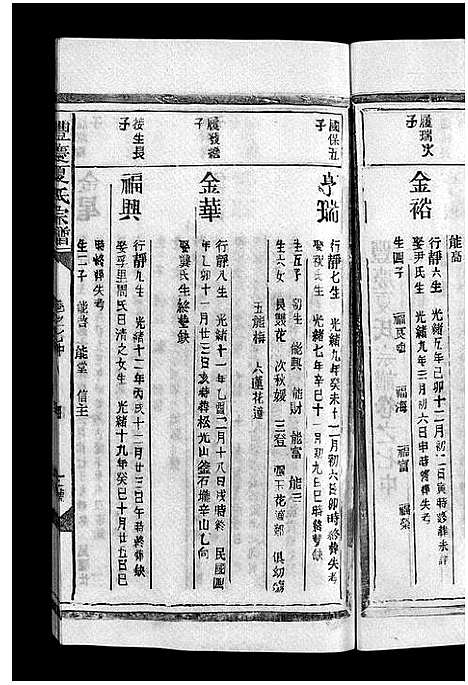 能高
履瑞次子
金裕
行靜六生 光緒五年己卯十二月初二日寅時終葬未詳
娶尹氏生 光緒九年三月初六日申時終葬失考
生四子 福民 福海 福富 福榮
國保五子
亭瑞
行靜七生 光緒九年癸未十一月初六日卯時終葬失考
娶 氏生 光緒七年辛巳十一月初九日巳時終葬缺
生五子 初生 能興 能財 能富 能三
生六女 長幾花 次秋媛 三登 四玉花 俱幼殤
五能梅 六蓮花
履發 子
金華
行靜八生 光緒十一年乙酉二月十八日戌時終 民國四
年乙卯十一月廿三日亥時葬松光山 石壠辛山乙向
娶龔氏生終葬缺
接生長子
福興
行靜九生 光緒十二年丙戌十二月廿三日午時終葬缺
娶孚里周氏日清之女生 光緒十九年癸巳十月廿五日巳
時終葬失考
生二子 能善 能堂 信主
豐慶夏氏宗譜
卷之七中